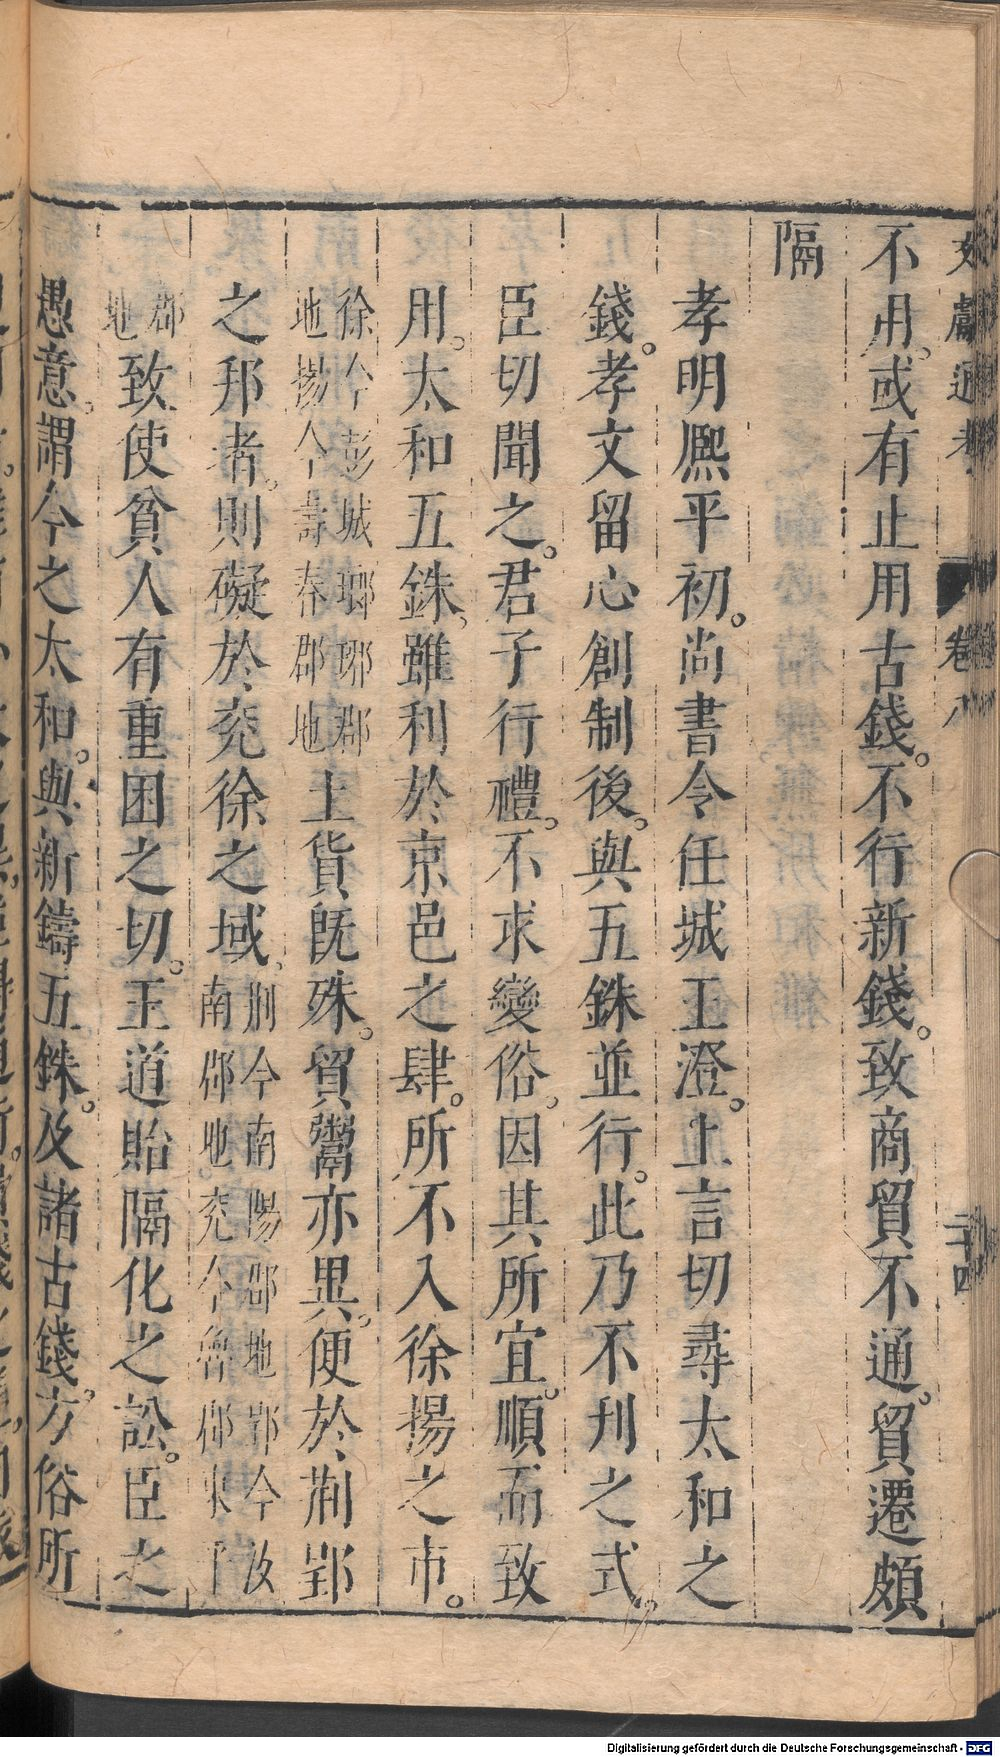 文獻通考 卷八 二十四
不用。或有止用古錢。不行新錢。致商貿不通。貿遷頗
隔
孝明熈平初。尚書令任城王澄。上言切尋太和之
錢。孝文留心創制後。與五銖並行。此乃不刊之式。
臣切聞之。君子行禮。不求變俗。因其所宜。順而致
用。太和五銖。雖利於京邑之肆。所不入徐揚之市。
徐今彭城瑯琊郡地揚今壽春郡地土貨旣殊。貿鬻亦異。便於荆郢
之邦者。則礙於兖徐之域。荆今南陽郡地郢今汝南郡地。兖今魯郡東平
郡地致使貧人有重困之切。王道貽隔化之訟。臣之
愚意。謂今之太和。與新鑄五銖。及諸古錢。方俗所
Digitalisierung gefördert durch die Deutsche Forschungsgemeinschaft - DFG